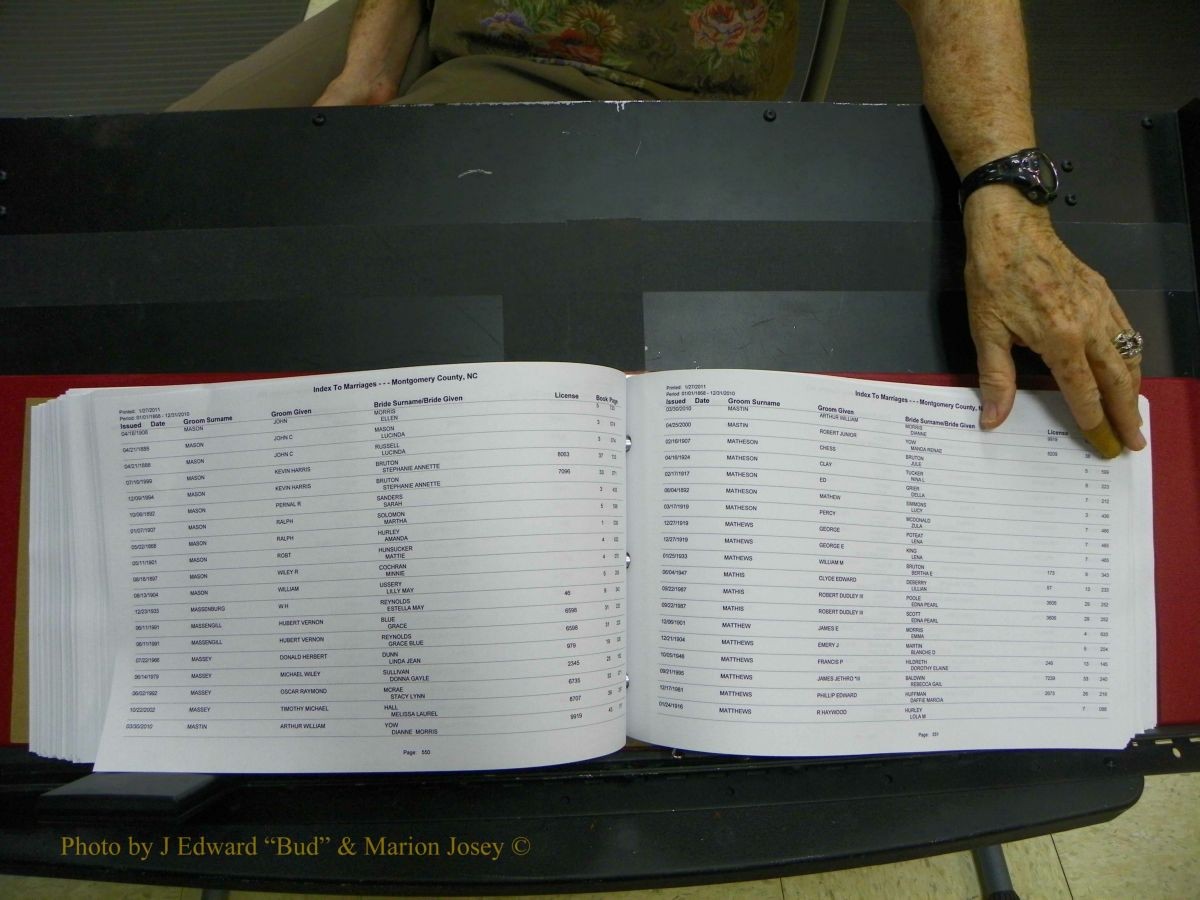 Index To Marriages - - - Montgomery County, NC
Printed: 1/27/2011
Period: 01/01/1868 - 12/31/2010
Issued Date Groom Surname Groom Given Bride Surname/Bride Given License Book Page
04/18/1906 MASON JOHN MORRIS
ELLEN
04/21/1888 MASON JOHN C MASON
LUCINDA
04/21/1888 MASON JOHN C RUSSELL
LUCINDA
07/10/1999 MASON KEVIN HARRIS BRUTON 8063
STEPHANIE ANNETTE
12/09/1994 MASON KEVIN HARRIS BRUTON 7096
STEPHANIE ANNETTE
10/06/1892 MASON PERNAL R SANDERS
SARAH
01/07/1907 MASON RALPH SOLOMON
MARTHA
MASON RALPH HURLEY
AMANDA
05/11/1901 MASON ROBT HUNSUCKER
MATTIE
08/18/1897 MASON WILEY R COCHRAN
MINNIE
08/13/1904 MASON WILLIAM USSERY
LILLY MAY
12/23/1933 MASSENBURG W H REYNOLDS 46
ESTELLA MAY
06/11/1991 MASSENGILL HUBERT VERNON BLUE 6598
GRACE
06/11/1991 MASSENGILL HUBERT VERNON REYNOLDS 6598
GRACE BLUE
07/22/1966 MASSEY DONALD HERBERT DUNN 979
LINDA JEAN
06/14/1979 MASSEY MICHAEL WILEY SULLIVAN 2345
DONNA GAYLE
06/02/1992 MASSEY OSCAR RAYMOND MCRAE 6735
STACY LYNN
10/22/2002 MASSEY TIMOTHY MICHAEL HALL 8707
MELISSA LAUREL
03/30/2010 MASTIN ARTHUR WILLIAM YOW 9919
DIANNE MORRIS
Page: 550
Index To Marriages - - - Montgomery County,
Printed: 1/27/2011
Period: 01/01/1868 - 12/31/2010
Issued Date Groom Surname Groom Given Bride Surname/Bride Given
03/30/2010 MASTIN ARTHUR WILLIAM MORRIS 9919
DIANNE
04/25/2000 MASTIN ROBERT JUNIOR YOW 8209
MANDA RENAE
02/16/1907 MATHESON CHESS BRUTON 5 599
JULE
04/16/1924 MATHESON CLAY TUCKER 8 223
NINA L
02/17/1917 MATHESON ED GRIER 7 212
DELLA
06/04/1892 MATHESON MATHEW SIMMONS 3 436
LUCY
03/17/1919 MATHESON PERCY MCDONALD
ZULA
12/27/1919 MATHEWS GEORGE POTEAT 7 485
LENA
12/27/1919 MATHEWS GEORGE E KING 7 485
LENA
01/25/1933 MATHEWS WILLIAM M BRUTON 173 9 343
BERTHA E
06/04/1947 MATHIS CLYDE EDWARD DEBERRY 87 13 233
LILLIAN
09/22/1987 MATHIS ROBERT DUDLEY III POOLE 3606 29 252
EDNA PEARL
09/22/1987 MATHIS ROBERT DUDLEY III SCOTT 3606 29 252
EDNA PEARL
12/06/1901 MATTHEW JAMES E MORRIS 4 633
EMMA
12/21/1904 MATTHEWS EMERY J MARTIN 5 204
BLANCHE D
10/05/1946 MATTHEWS FRANCIS P HILDRETH 246 13 145
DOROTHY ELAINE
09/21/1995 MATTHEWS JAMES JETHRO *III BALDWIN 7239 33 240
REBECCA GAIL
12/17/1981 MATTHEWS PHILLIP EDWARD HUFFMAN 2873 26 216
DAFFIE MARCIA
01/24/1916 MATTHEWS R HAYWOOD HURLEY 7 098
LOLA M
Page: 551
Photo by J Edward “Bud” & Marion Josey ©